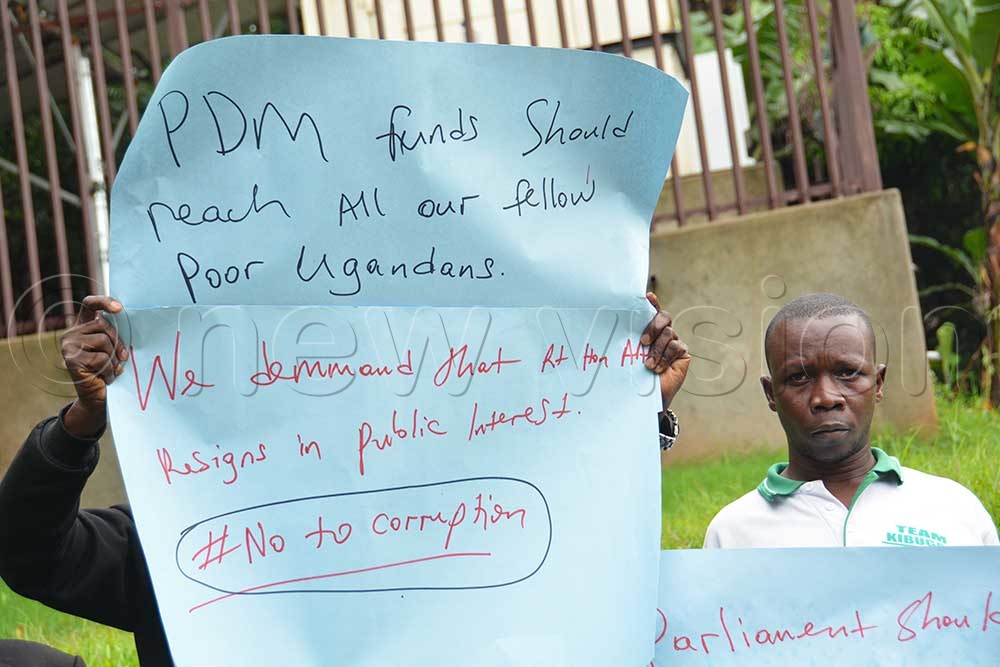 PDM funds Should
reach All our fellow
Poor Ugandans.
We demmand that Rt Hon
Resigns in public Interest.
#No to corruption
© new vision
TEAM
Parliament Should